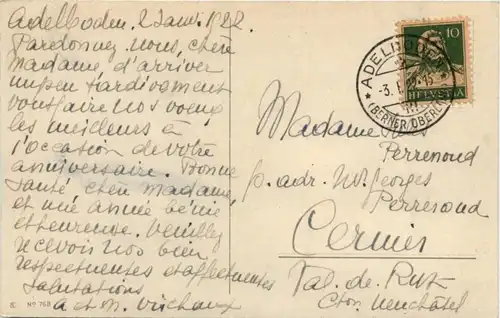 Adelboden. 2 Janv. 1922.
Pardonnez nous, chère
Madame d'arriver
un peu tardivement
vous faire nos voeux
les meilleurs à
l'occasion de votre
anniversaire. Bonne
santé chère Madame,
et une année bénie
et heureuse. Veuillez
recevoir nos bien
respectueuses et affectueuses
salutations
A et M.
No 768
10
HELVETIA
ADELBODEN
(BERNER OBERLAND)
Madame
Perrenoud
p. adr. Mr. Georges
Perrenoud
Cernier
Val. de. Ruz
Cton. Neuchâtel